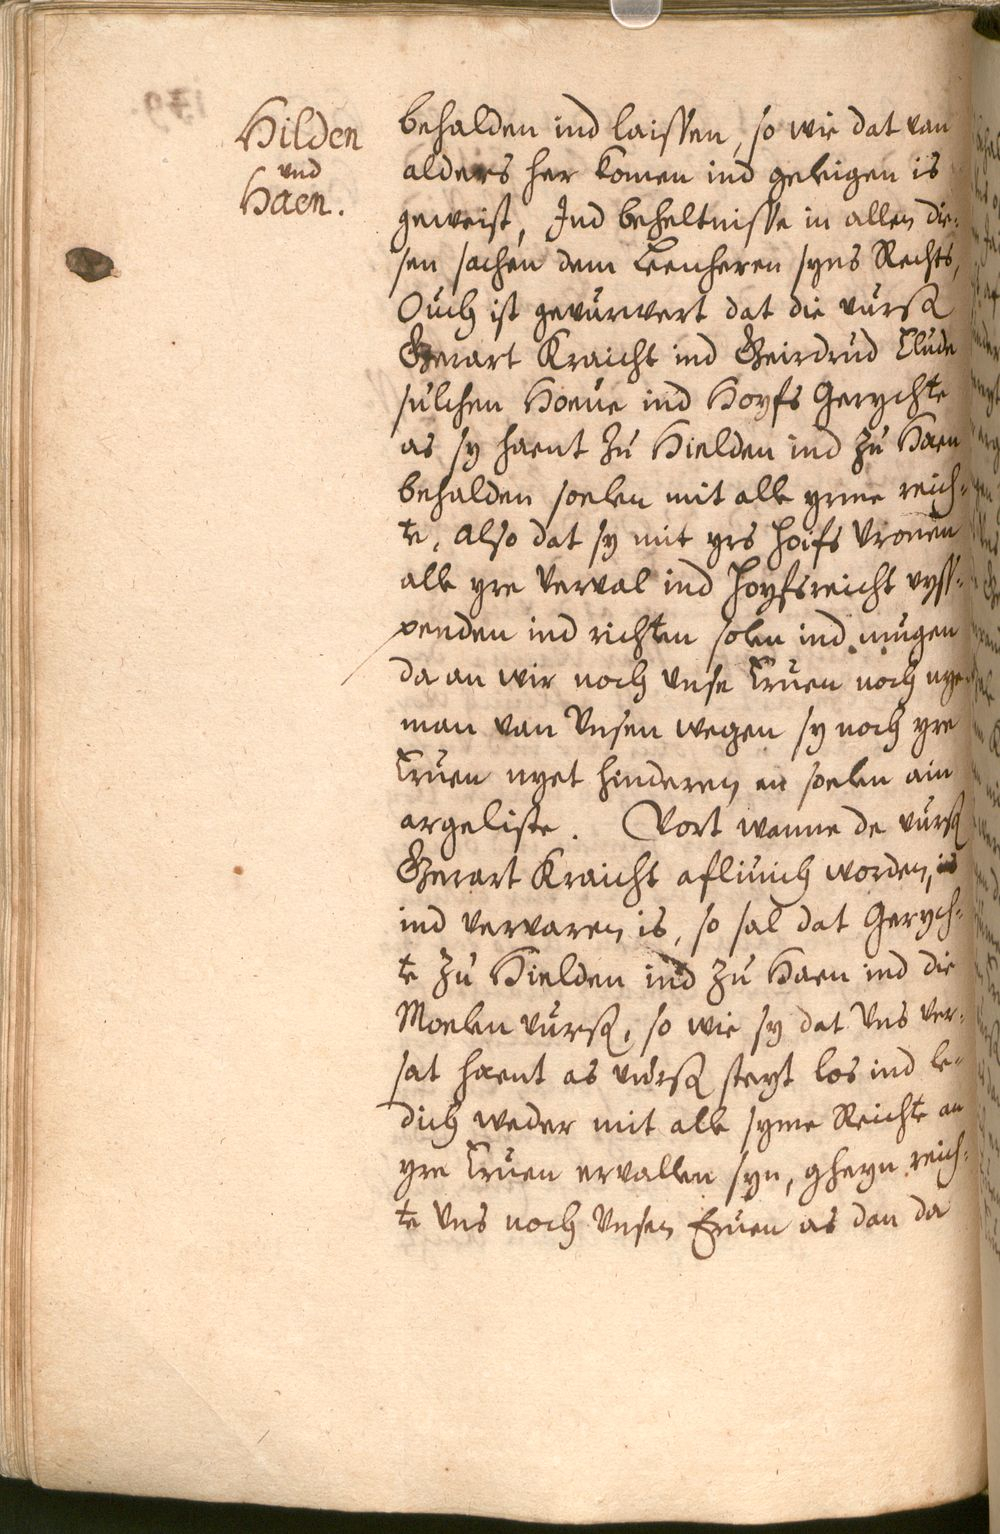 Hilden
und
Haen.
behalden ind laissen, so wie dat van
alders her komen ind geleigen is
geweist, Ind beheltnisse in allen die-
sen sachen dem Leenheren syns Rechts,
Ouch ist gevurwert dat die vurß
Gerart Kraicht ind Geirdrud Elude
sulchen Hoeue ind Hoyfs Gerychte
as sy haent zu Hielden ind zu Haen
behalden soelen mit alle yrme reich-
te, also dat sy mit yrs hoifs Vronen
alle yre Verval ind hoyfsreicht vyss-
penden ind richten solen ind mugen
da an wir noch Vnse Eruen noch nye-
man van Vnsen wegen sy noch yre
Eruen nyet hinderen en soelen ain
argeliste. Vort wanne de vurß
Gerart Kraicht afliuich worden,
ind vervaren is, so sal dat Gerych-
te zu Hielden ind zu Haen ind die
Moelen vurß, so wie sy dat Vns ver-
sat haent as vurß steyt los ind le-
dich weder mit alle syme Reichte an
yre Eruen ervallen syn, gheyn reich-
te Vns noch Vnsen Eruen as dan da